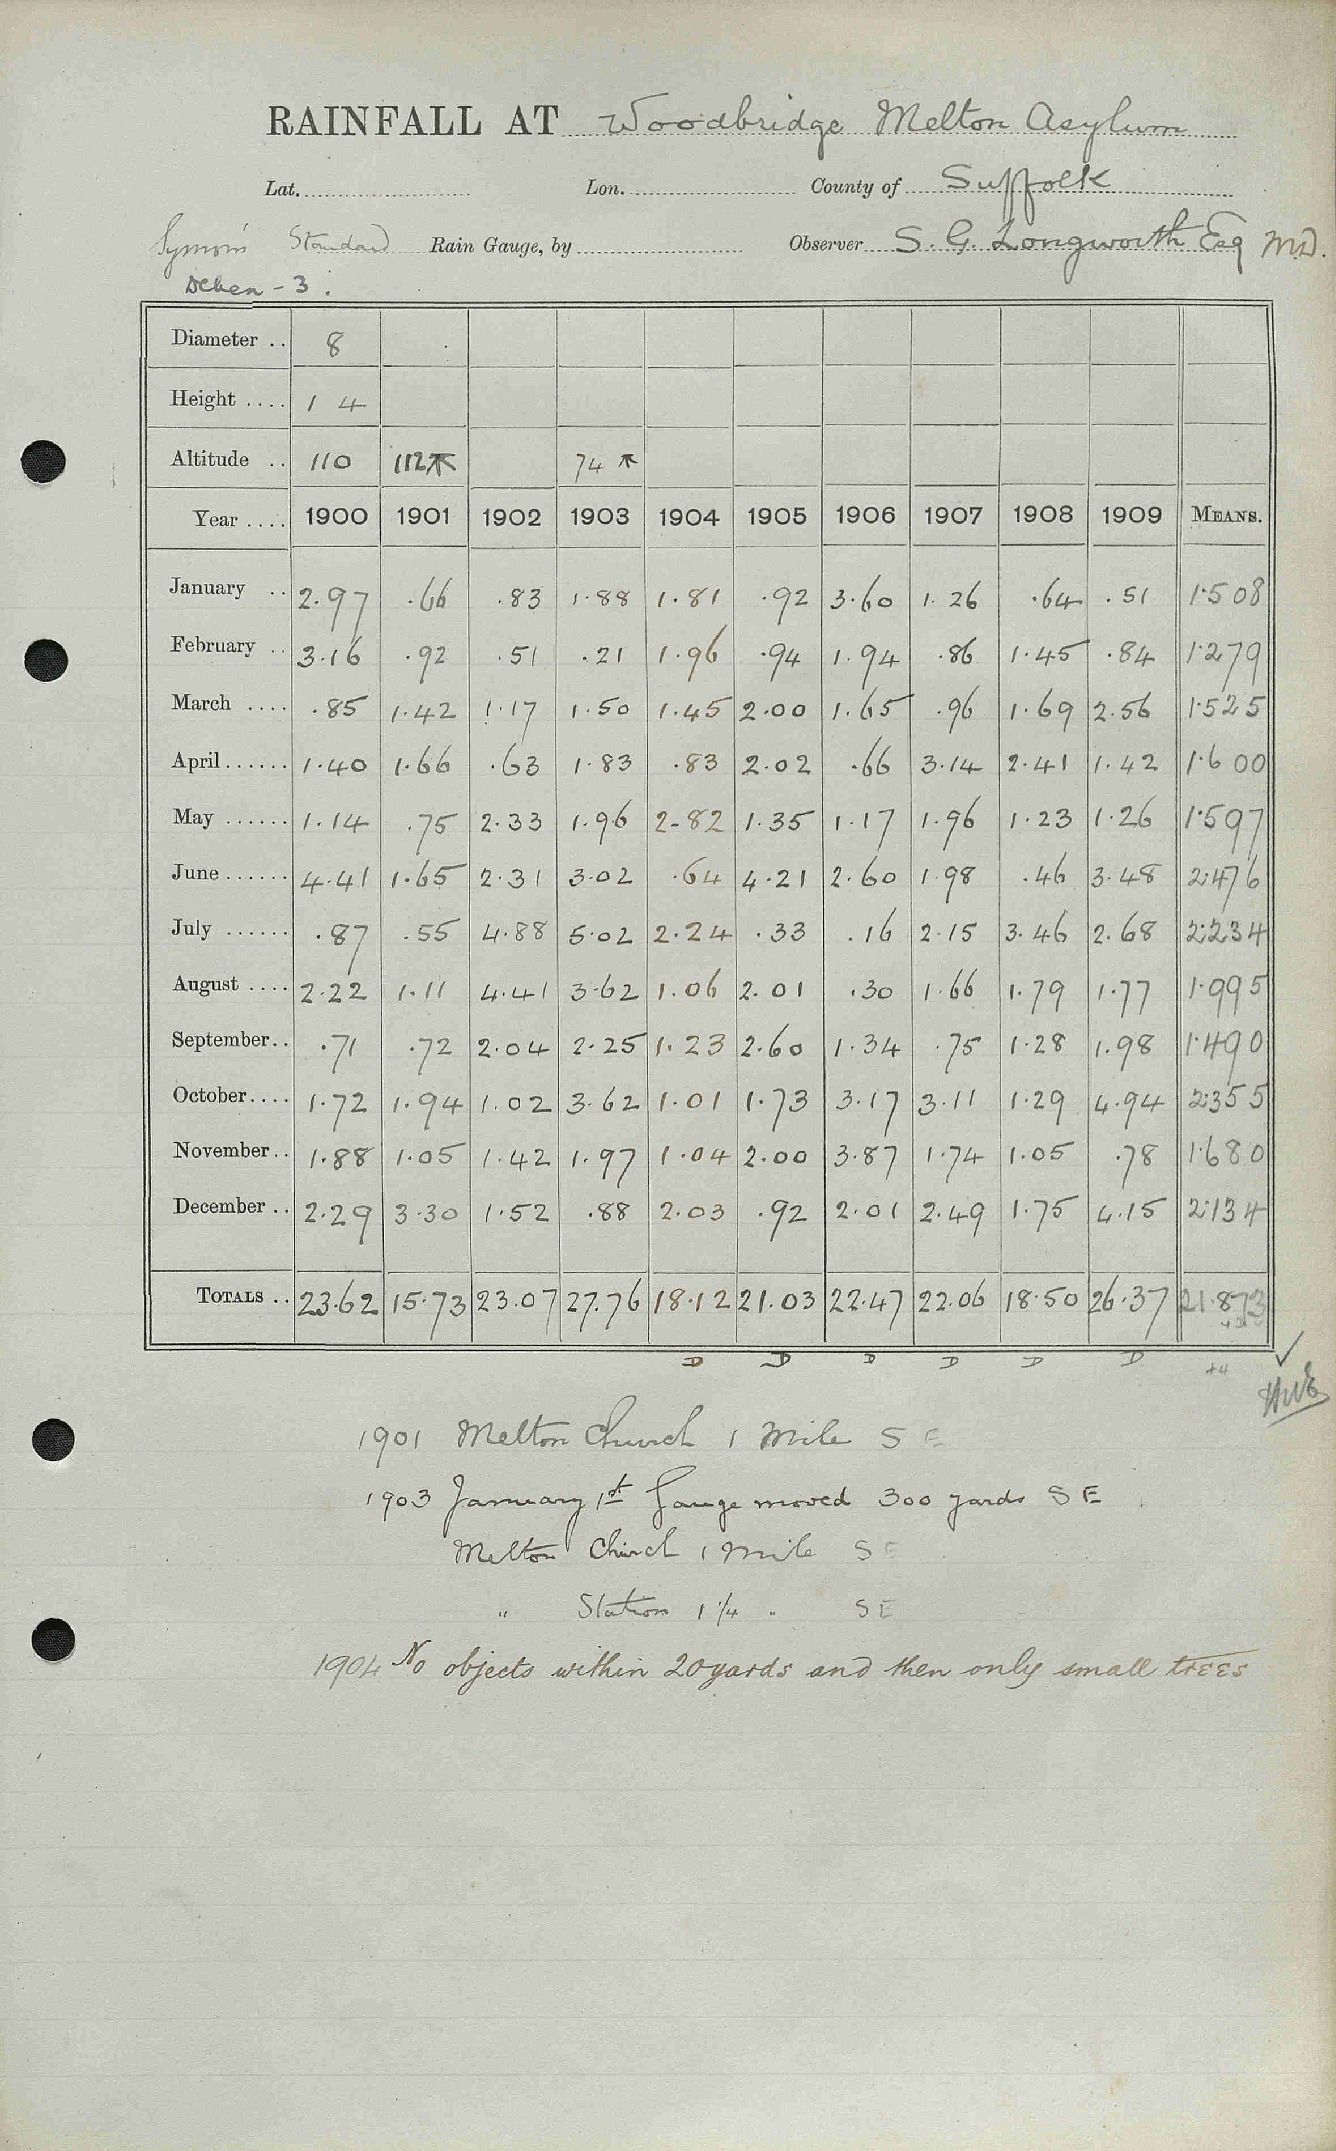 RAINFALL AT Woodbridge Melton Asylum
Lat. Lon. County of Suffolk
Standard Rain Gauge, by Observer S. G. Longworth Esq M.D.
Deben - 3.
Diameter .. 8
Height .... 1 4
Altitude .. 110 112 74
Year .... 1900 1901 1902 1903 1904 1905 1906 1907 1908 1909 MEANS.
January .. 2.97 .66 .83 1.88 1.81 .92 3.60 1.26 .64 .51 1.508
February .. 3.16 .92 .51 .21 1.96 .94 1.94 .86 1.45 .84 1.279
March .... .85 1.42 1.17 1.50 1.45 2.00 1.65 .96 1.69 2.56 1.525
April...... 1.40 1.66 .63 1.83 .83 2.02 .66 3.14 2.41 1.42 1.600
May ...... 1.14 .75 2.33 1.96 2.82 1.35 1.17 1.96 1.23 1.26 1.597
June...... 4.41 1.65 2.31 3.02 .64 4.21 2.60 1.98 .46 3.48 2.476
July ...... .87 .55 4.88 5.02 2.24 .33 .16 2.15 3.46 2.68 2.234
August .... 2.22 1.11 4.41 3.62 1.06 2.01 .30 1.66 1.79 1.77 1.995
September.. .71 .72 2.04 2.25 1.23 2.60 1.34 .75 1.28 1.98 1.490
October.... 1.72 1.94 1.02 3.62 1.01 1.73 3.17 3.11 1.29 4.94 2.355
November.. 1.88 1.05 1.42 1.97 1.04 2.00 3.87 1.74 1.05 .78 1.680
December .. 2.29 3.30 1.52 .88 2.03 .92 2.01 2.49 1.75 4.15 2.134
TOTALS .. 23.62 15.73 23.07 27.76 18.12 21.03 22.47 22.06 18.50 26.37 21.873
D D D D D D +4
1901 Melton Church 1 Mile S E
1903 January 1st Gauge moved 300 yards S E
Melton Church 1 Mile S E
" Station 1 1/4 " S E
1904 No objects within 20 yards and then only small trees